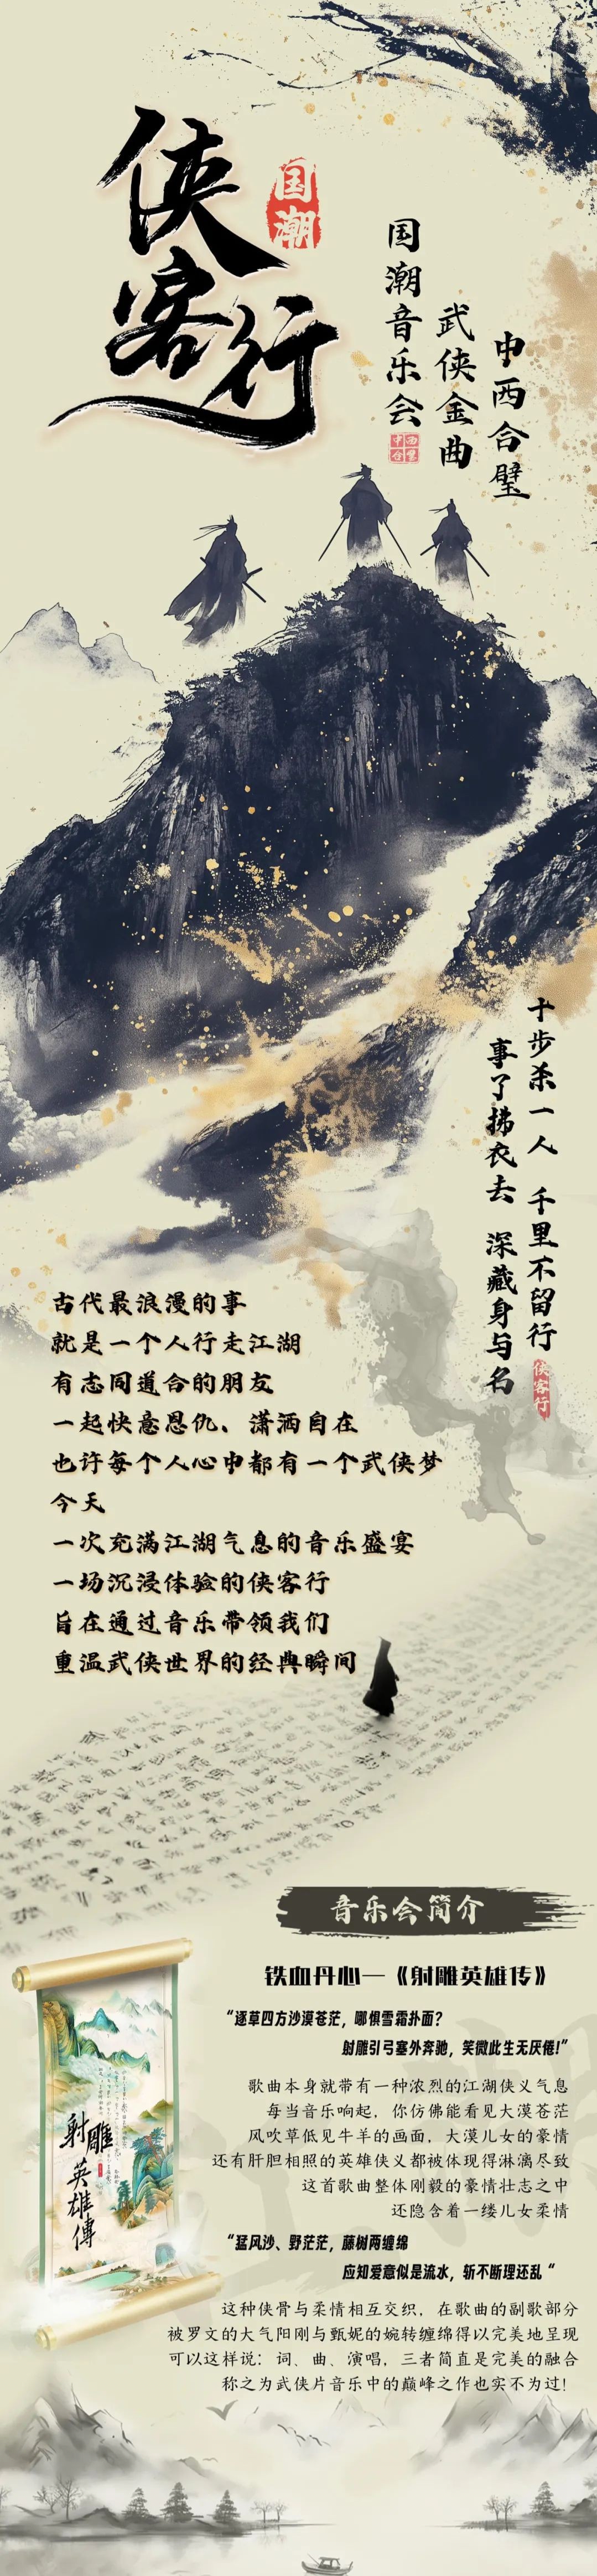 侠客行
国潮
国潮音乐会
武侠金曲
中西合璧
十步杀一人 千里不留行
事了拂衣去 深藏身与名
侠客行
古代最浪漫的事
就是一个人行走江湖
有志同道合的朋友
一起快意恩仇、潇洒自在
也许每个人心中都有一个武侠梦
今天
一次充满江湖气息的音乐盛宴
一场沉浸体验的侠客行
旨在通过音乐带领我们
重温武侠世界的经典瞬间
音乐会简介
铁血丹心—《射雕英雄传》
“逐草四方沙漠苍茫，哪惧雪霜扑面？
射雕引弓塞外奔驰，笑微此生无厌倦！”
歌曲本身就带有一种浓烈的江湖侠义气息
每当音乐响起，你仿佛能看见大漠苍茫
风吹草低见牛羊的画面，大漠儿女的豪情
还有肝胆相照的英雄侠义都被体现得淋漓尽致
这首歌曲整体刚毅的豪情壮志之中
还隐含着一缕儿女柔情
“猛风沙、野茫茫，藤树两缠绵
应知爱意似是流水，斩不断理还乱“
这种侠骨与柔情相互交织，在歌曲的副歌部分
被罗文的大气阳刚与甄妮的婉转缠绵得以完美地呈现
可以这样说：词、曲、演唱，三者简直是完美的融合
称之为武侠片音乐中的巅峰之作也实不为过！
射雕
英雄傳